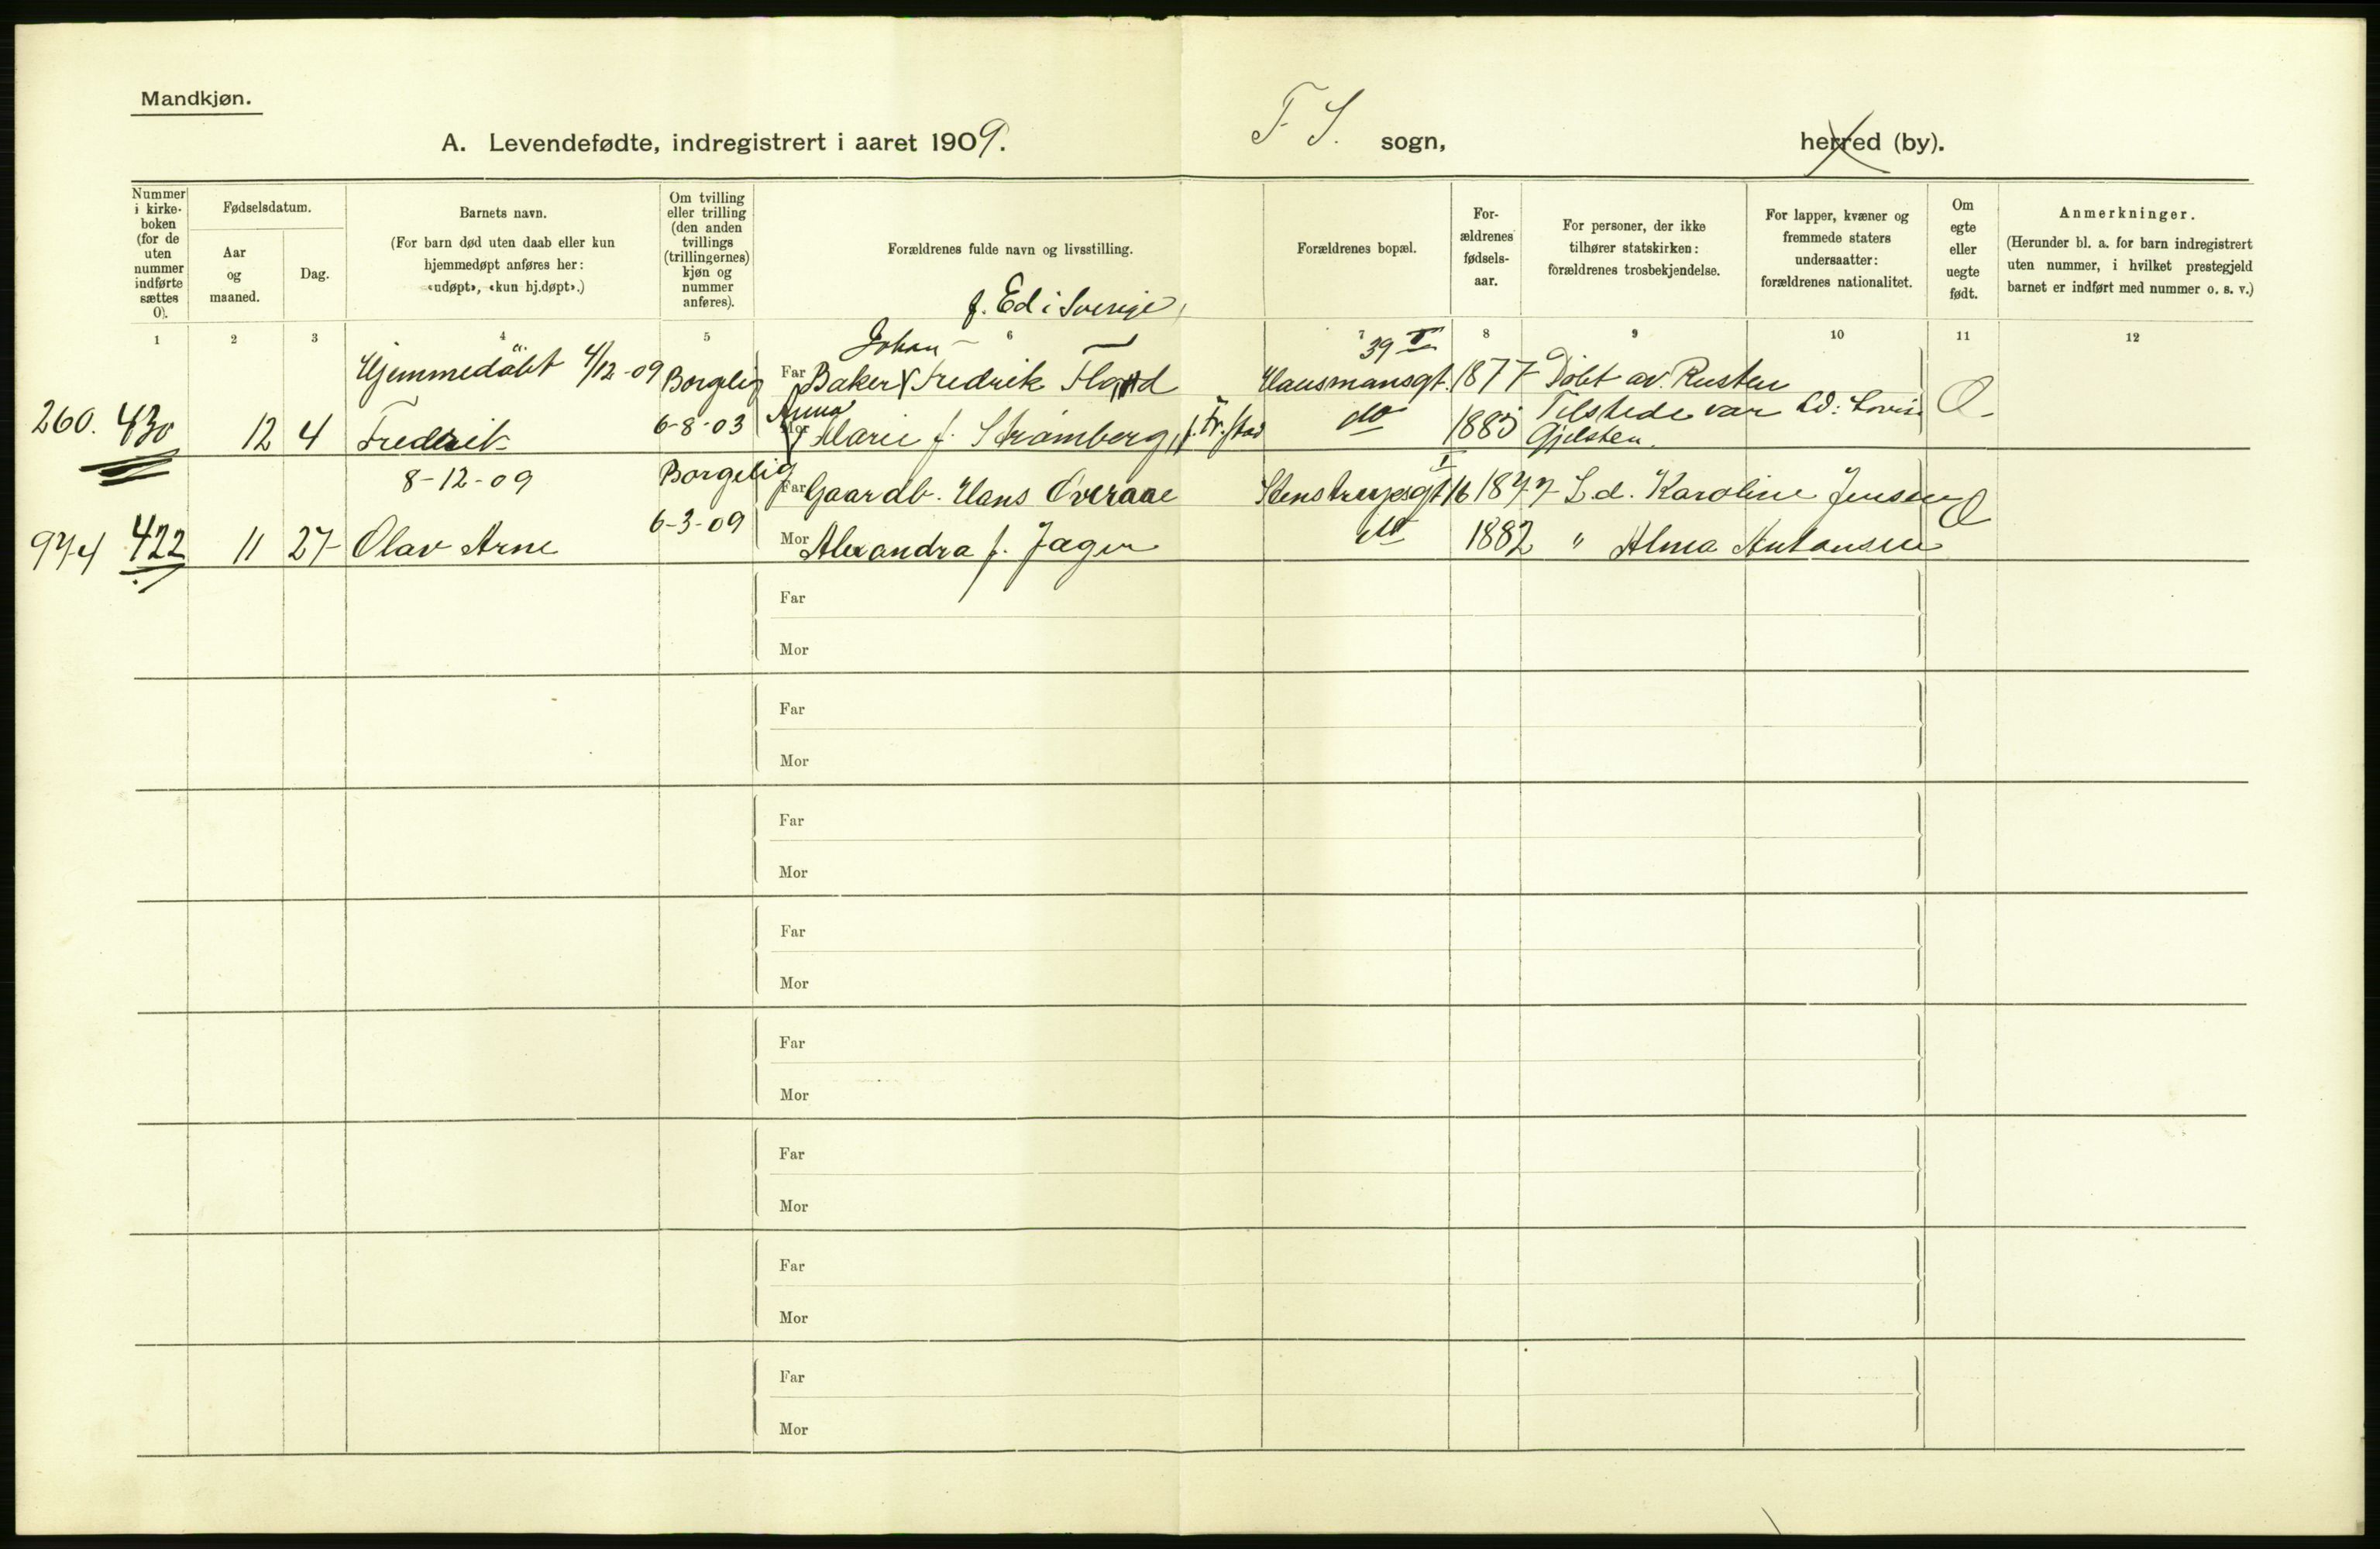 Mandkjøn.
A. Levendefødte, indregistrert i aaret 1909.
F. S. sogn,
herred (by).
Nummer i kirkeboken (for de uten nummer indførte sættes 0).
Fødselsdatum.
Aar og maaned.
Dag.
Barnets navn.
(For barn død uten daab eller kun hjemmedøpt anføres her: «udøpt», «kun hj.døpt».)
Om tvilling eller trilling (den anden tvillings (trillingernes) kjøn og nummer anføres).
Forældrenes fulde navn og livsstilling.
Forældrenes bopæl.
Forældrenes fødselsaar.
For personer, der ikke tilhører statskirken: forældrenes trosbekjendelse.
For lapper, kvæner og fremmede staters undersaatter: forældrenes nationalitet.
Om egte eller uegte født.
Anmerkninger.
(Herunder bl. a. for barn indregistrert uten nummer, i hvilket prestegjeld barnet er indført med nummer o. s. v.)
1 2 3 4 5 6 7 8 9 10 11 12
f. Ed i Sverige,
Johan
39 II
Hjemmedöbt 4/12-09 Borgelig Far Baker Fredrik Flood Hausmansgt. 1877 Döbt av. Rusten
260. 430 12 4 Fredrik 6-8-03 Anna Mor Marie f. Strömberg, f. Fr.stad do 1885 Tilstede var Gjelsten.
8-12-09 Borgelig Far Gaardb. Hans Overaae Stenstrupsgt 16 1877 L.d. Karoline Jensen
974 422 11 27 Olav Arne 6-3-09 Mor Alexandra f. Jager do 1882 " Alma Antonsen
Far
Mor
Far
Mor
Far
Mor
Far
Mor
Far
Mor
Far
Mor
Far
Mor
Far
Mor